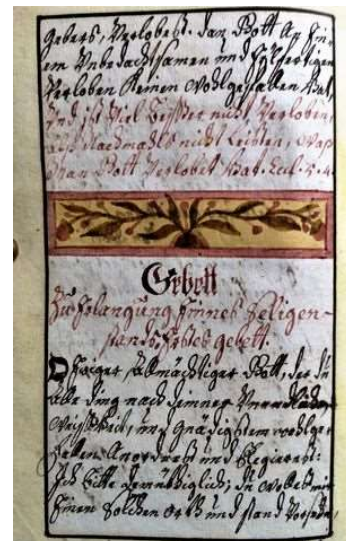 gebers, Verlobest. dan Gott an Ein-
em Unbedachtsamen und
Verloben Keinen wohlgefallen hat,
Und ist Viel besser nicht Verloben,
als Nachmahls nicht Leisten, was
Man Gott Verlobet hat. Eccl. 5. 4.
Gebett
Zu Erlangung Eines Seligen-
stands, Erstes gebett.
O Ewiger Allmächtiger Gott, der du
alle ding nach deiner
Weyßheit, und gnädigstem wohlge-
fallen Anordnest und Regierest:
Ich bitte demüthiglich, du wollest mir
Einen Solchen orth und stand